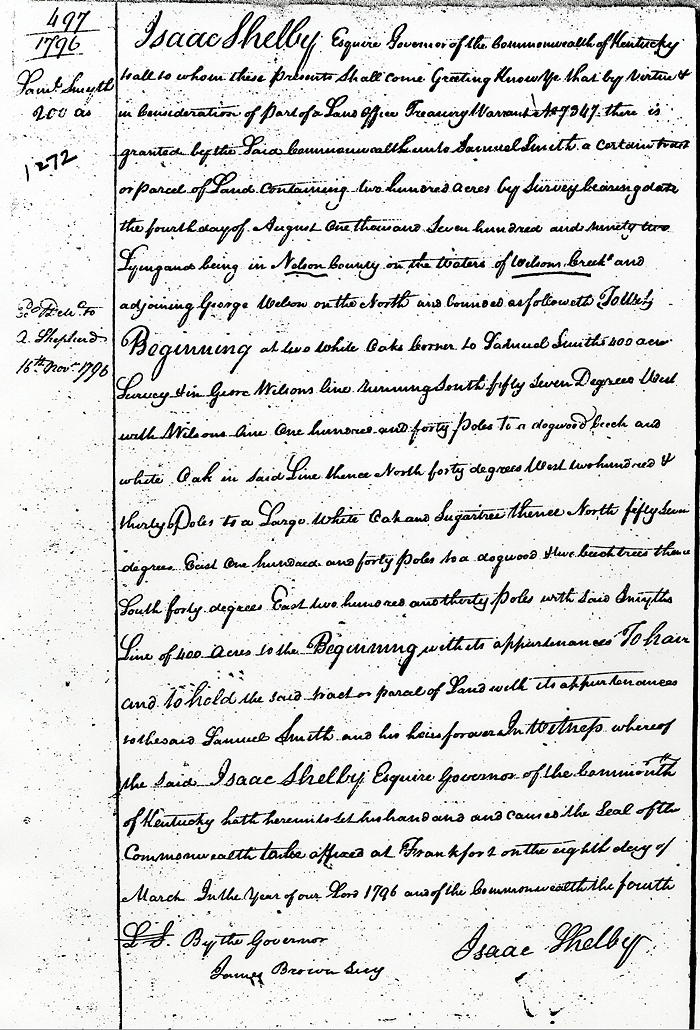 497
1796
Saml. Smyth
200 as
1272
Isaac Shelby Esquire Governor of the Commonwealth of Kentucky
to all to whom these presents Shall come Greeting Know Ye that by virtue &
in Consideration of Part of a Land Office Treasury Warrant No 7347 there is
granted by the Said Commonwealth unto Samuel Smith a certain tract
or parcel of Land containing two hundred acres by Survey bearing date
the fourth day of August One thousand Seven hundred and ninety two
Lying and being in Nelson County on the Waters of Wilsons Creek and
adjoining George Welson on the North and bounded as followeth To Wit
Deld. to
A. Shepherd
16th Novr 1796
Beginning at two White Oaks Corner to Samuel Smiths 400 acre
Survey & in Geore Wilsons line running South fifty Seven Degrees West
with Wilsons line One hundred and forty Poles to a dogwood beech and
white Oak in said Line thence North forty degrees West two hundred &
thirty Poles to a Large White Oak and Sugartree thence North fifty Seven
degrees East One hundred and forty Poles to a dogwood & two beech trees thence
South forty degrees East two hundred and thirty Poles with said Smyths
Line of 400 Acres to the Beginning with its appurtenances To have
and to hold the said tract or parcel of Land with its appurtenances
to the said Samuel Smith and his heirs forever In Witness whereof
the said Isaac Shelby Esquire Governor of the Commonwth
of Kentucky hath hereunto set his hand and and caused the Seal of the
Commonwealth to be affixed at Frankfort on the eighth day of
March In the Year of our Lord 1796 and of the Commonwealth the fourth
L S. By the Governor
Isaac Shelby
James Brown Secy